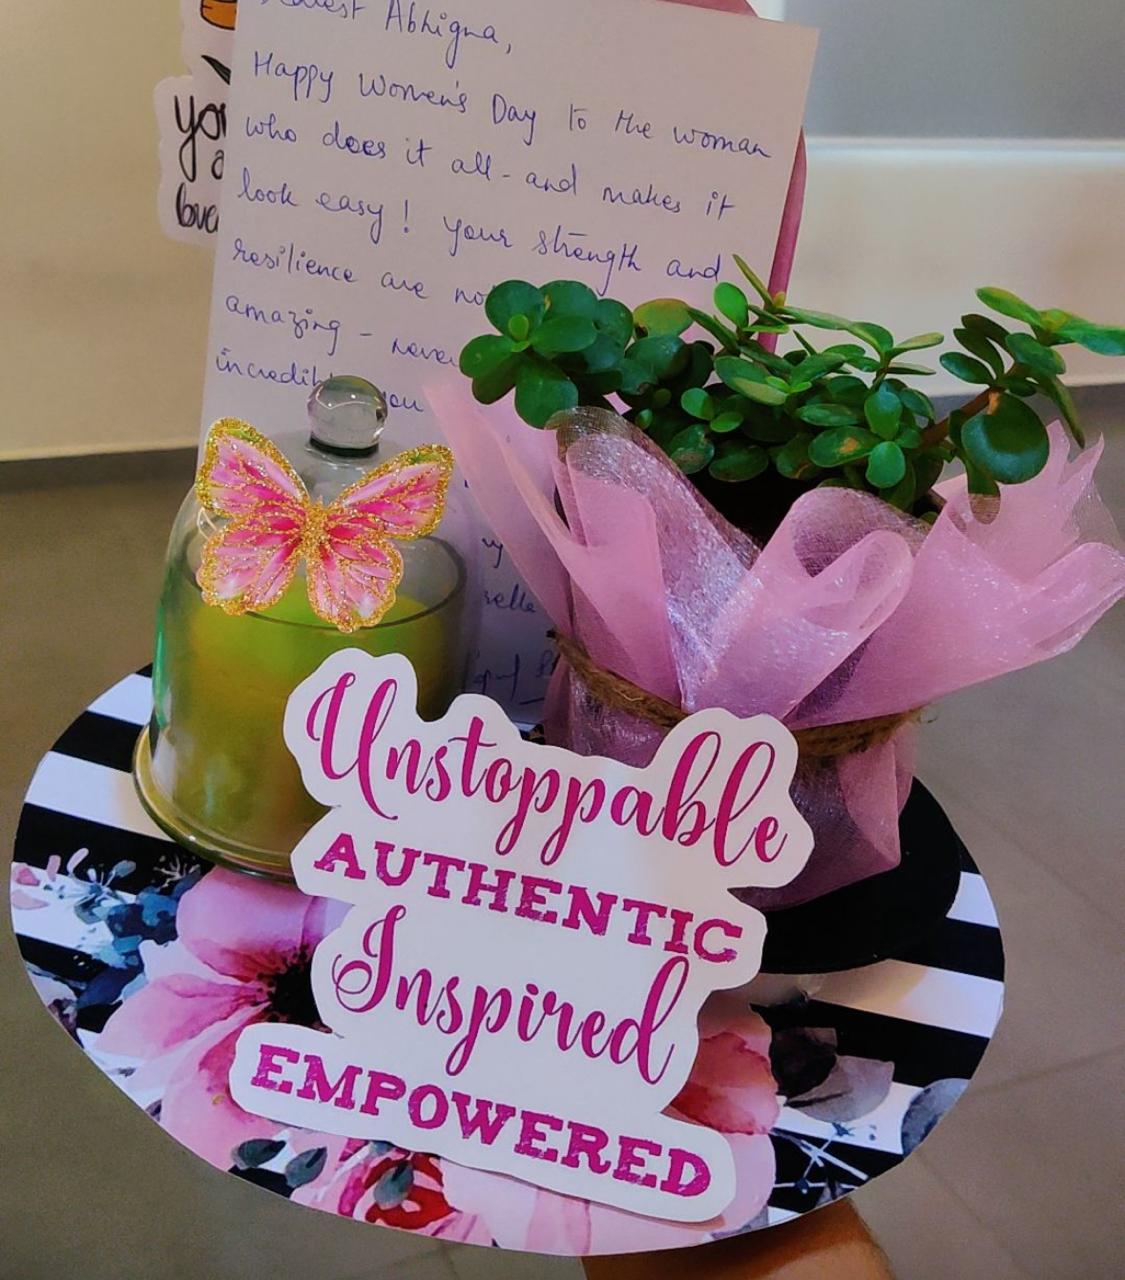 Abhigna,
Happy Women's Day to the woman
who does it all - and makes it
look easy! Your strength and
resilience are
amazing -
you
Unstoppable
AUTHENTIC
Inspired
EMPOWERED